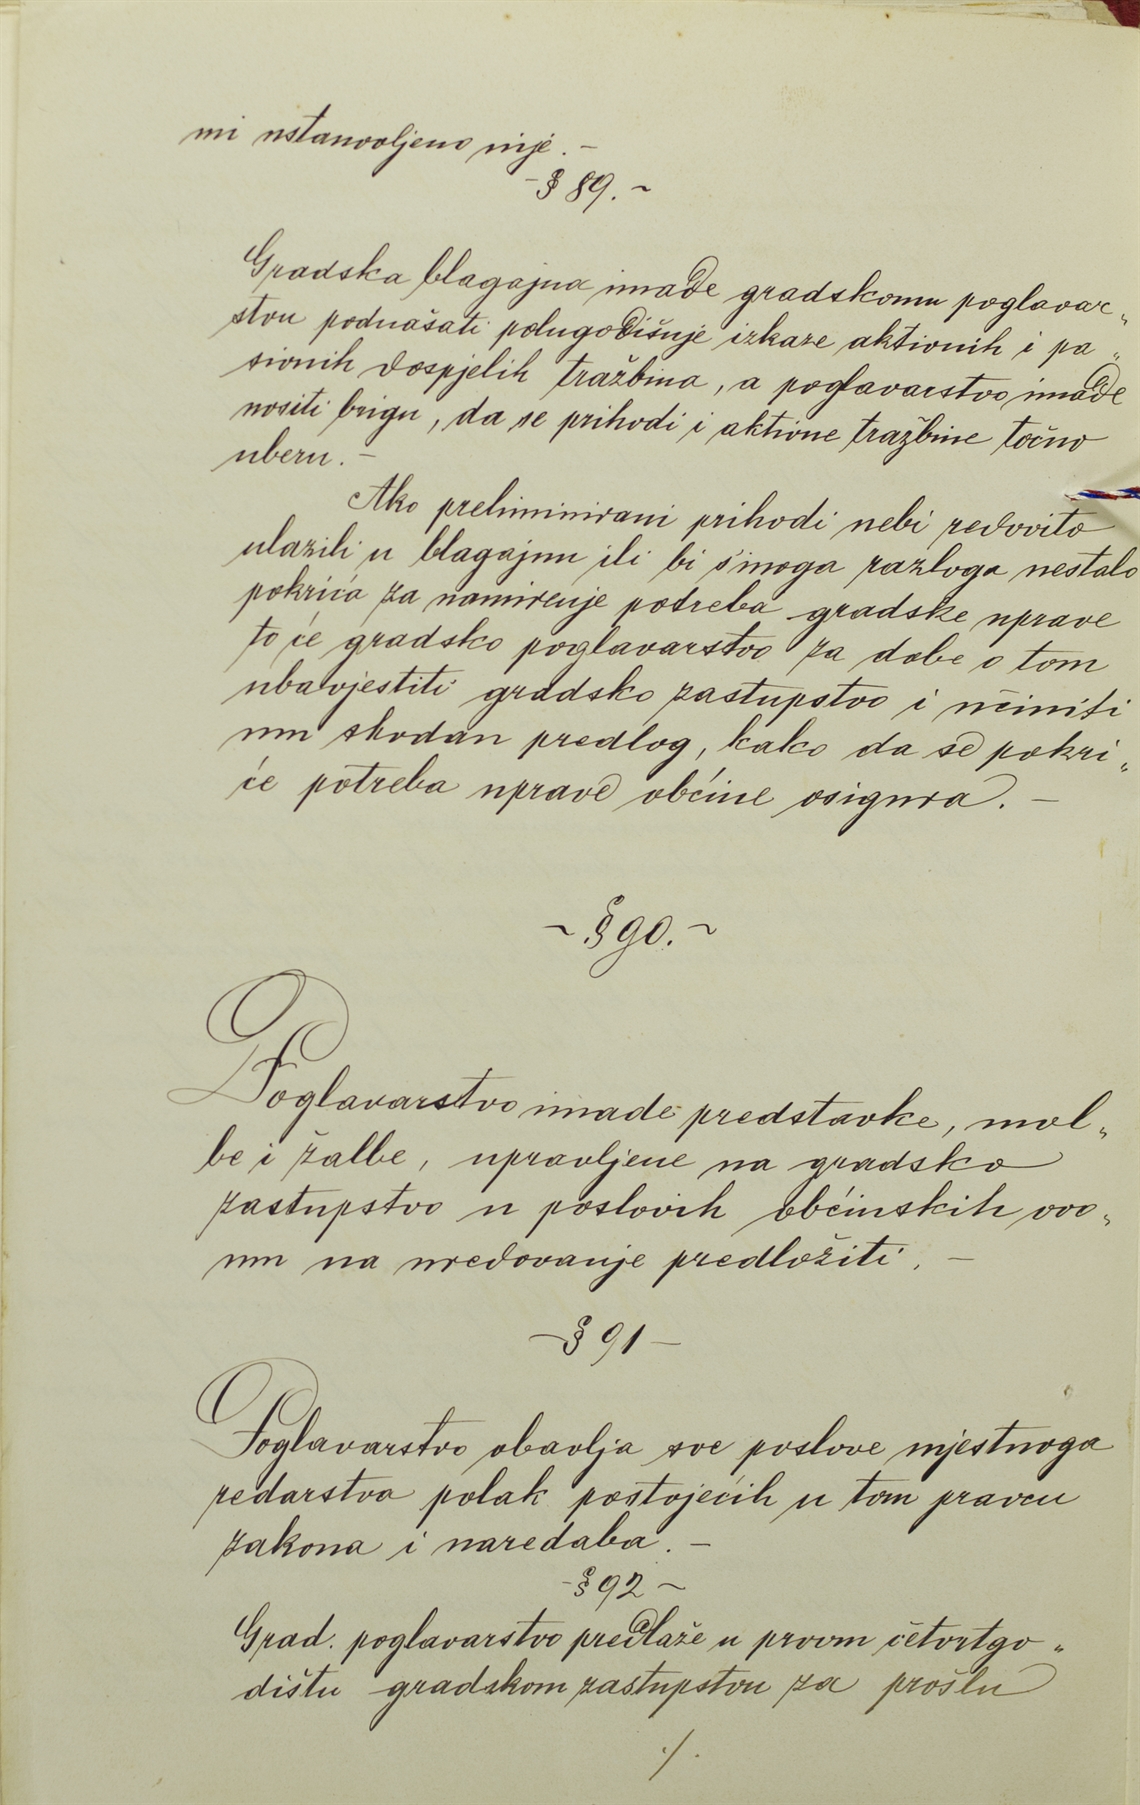 mi ustanovljeno nije. –
– § 89. ~
Gradska blagajna imade gradskomu poglavar„
stvu podnašati polugodišnje izkaze aktivnih i pa„
sivnih dospjelih tražbina, a poglavarstvo imade
nositi brigu, da se prihodi i aktivne tražbine točno
uberu. –
Ako preliminirani prihodi nebi redovito
ulazili u blagajnu ili bi s'inoga razloga nestalo
pokrića za namirenje potreba gradske uprave
to će gradsko poglavarstvo za dobe o tom
ubavjestiti gradsko zastupstvo i učiniti
mu shodan predlog, kako da se pokri„
će potreba uprave obćine osigura. –
~ § 90. ~
Poglavarstvo imade predstavke, mol„
be i žalbe, upravljene na gradsko
zastupstvo u poslovih obćinskih ovo„
mu na uredovanje predložiti. –
– § 91 –
Poglavarstvo obavlja sve poslove mjestnoga
redarstva polak postojećih u tom pravcu
zakona i naredaba. –
– § 92 ~
Grad. poglavarstvo predlaže u prvom četvrtgo„
dištu gradskom zastupstvu za prošlu
./.